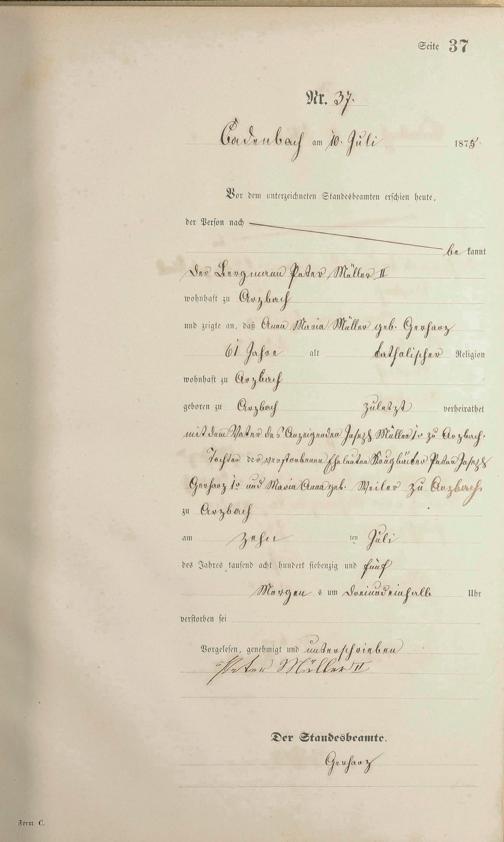 Seite 37
Nr. 37.
Cadenbach am 10. Juli 1875.
Vor dem unterzeichneten Standesbeamten erschien heute,
der Person nach
be kannt
der Bergmann Peter Müller II
wohnhaft zu Arzbach
und zeigte an, daß Anna Maria Müller geb. Gerharz
61 Jahre alt katholischer Religion
wohnhaft zu Arzbach
geboren zu Arzbach zuletzt verheirathet
mit dem Vater des Anzeigenden Joseph Müller zu Arzbach.
Tochter der verstorbenen Eheleute Peter Joseph
Gerharz und Maria Anna geb. Weiler zu Arzbach
zu Arzbach
am zehn ten Juli
des Jahres tausend acht hundert siebenzig und fünf
Morgens um dreiundeinhalb Uhr
verstorben sei
Vorgelesen, genehmigt und unterschrieben
Peter Müller II
Der Standesbeamte.
Gerharz
Form C.